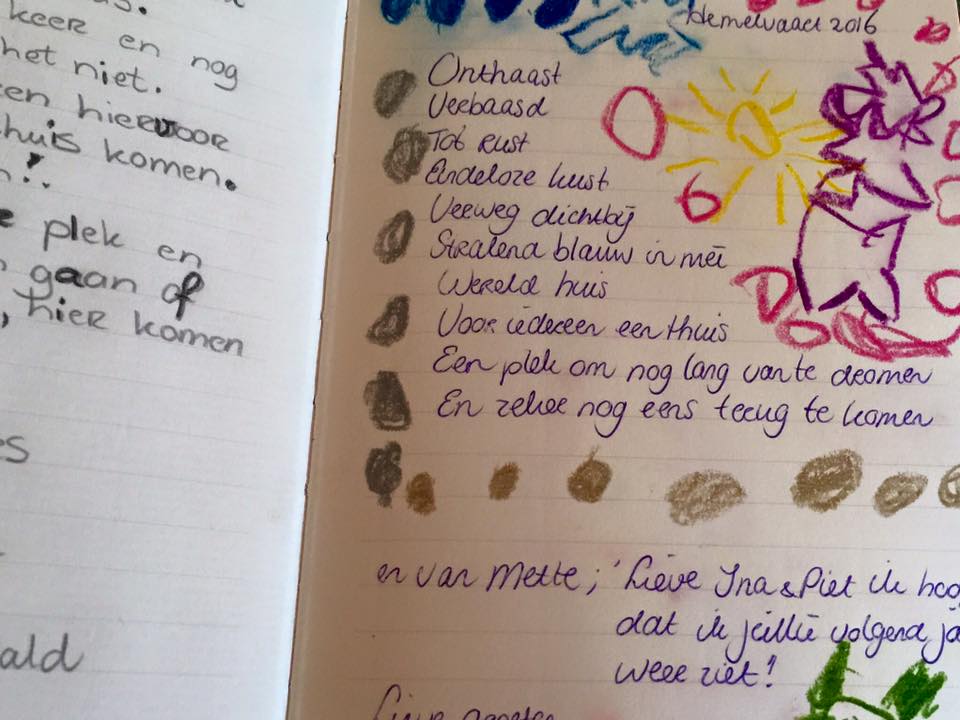 keer en nog
het niet.
hiervoor
huis komen.
plek en
gaan of
, hier komen
Hemelvaart 2016
Onthaast
Verbaasd
Tot rust
Eindeloze kust
Verweg dichtbij
Stralend blauw in mei
Wereld huis
Voor iedereen een thuis
Een plek om nog lang van te dromen
En zeker nog eens terug te komen
en van Mette; 'Lieve Ina & Piet ik
dat ik jullie volgend
weer ziet!